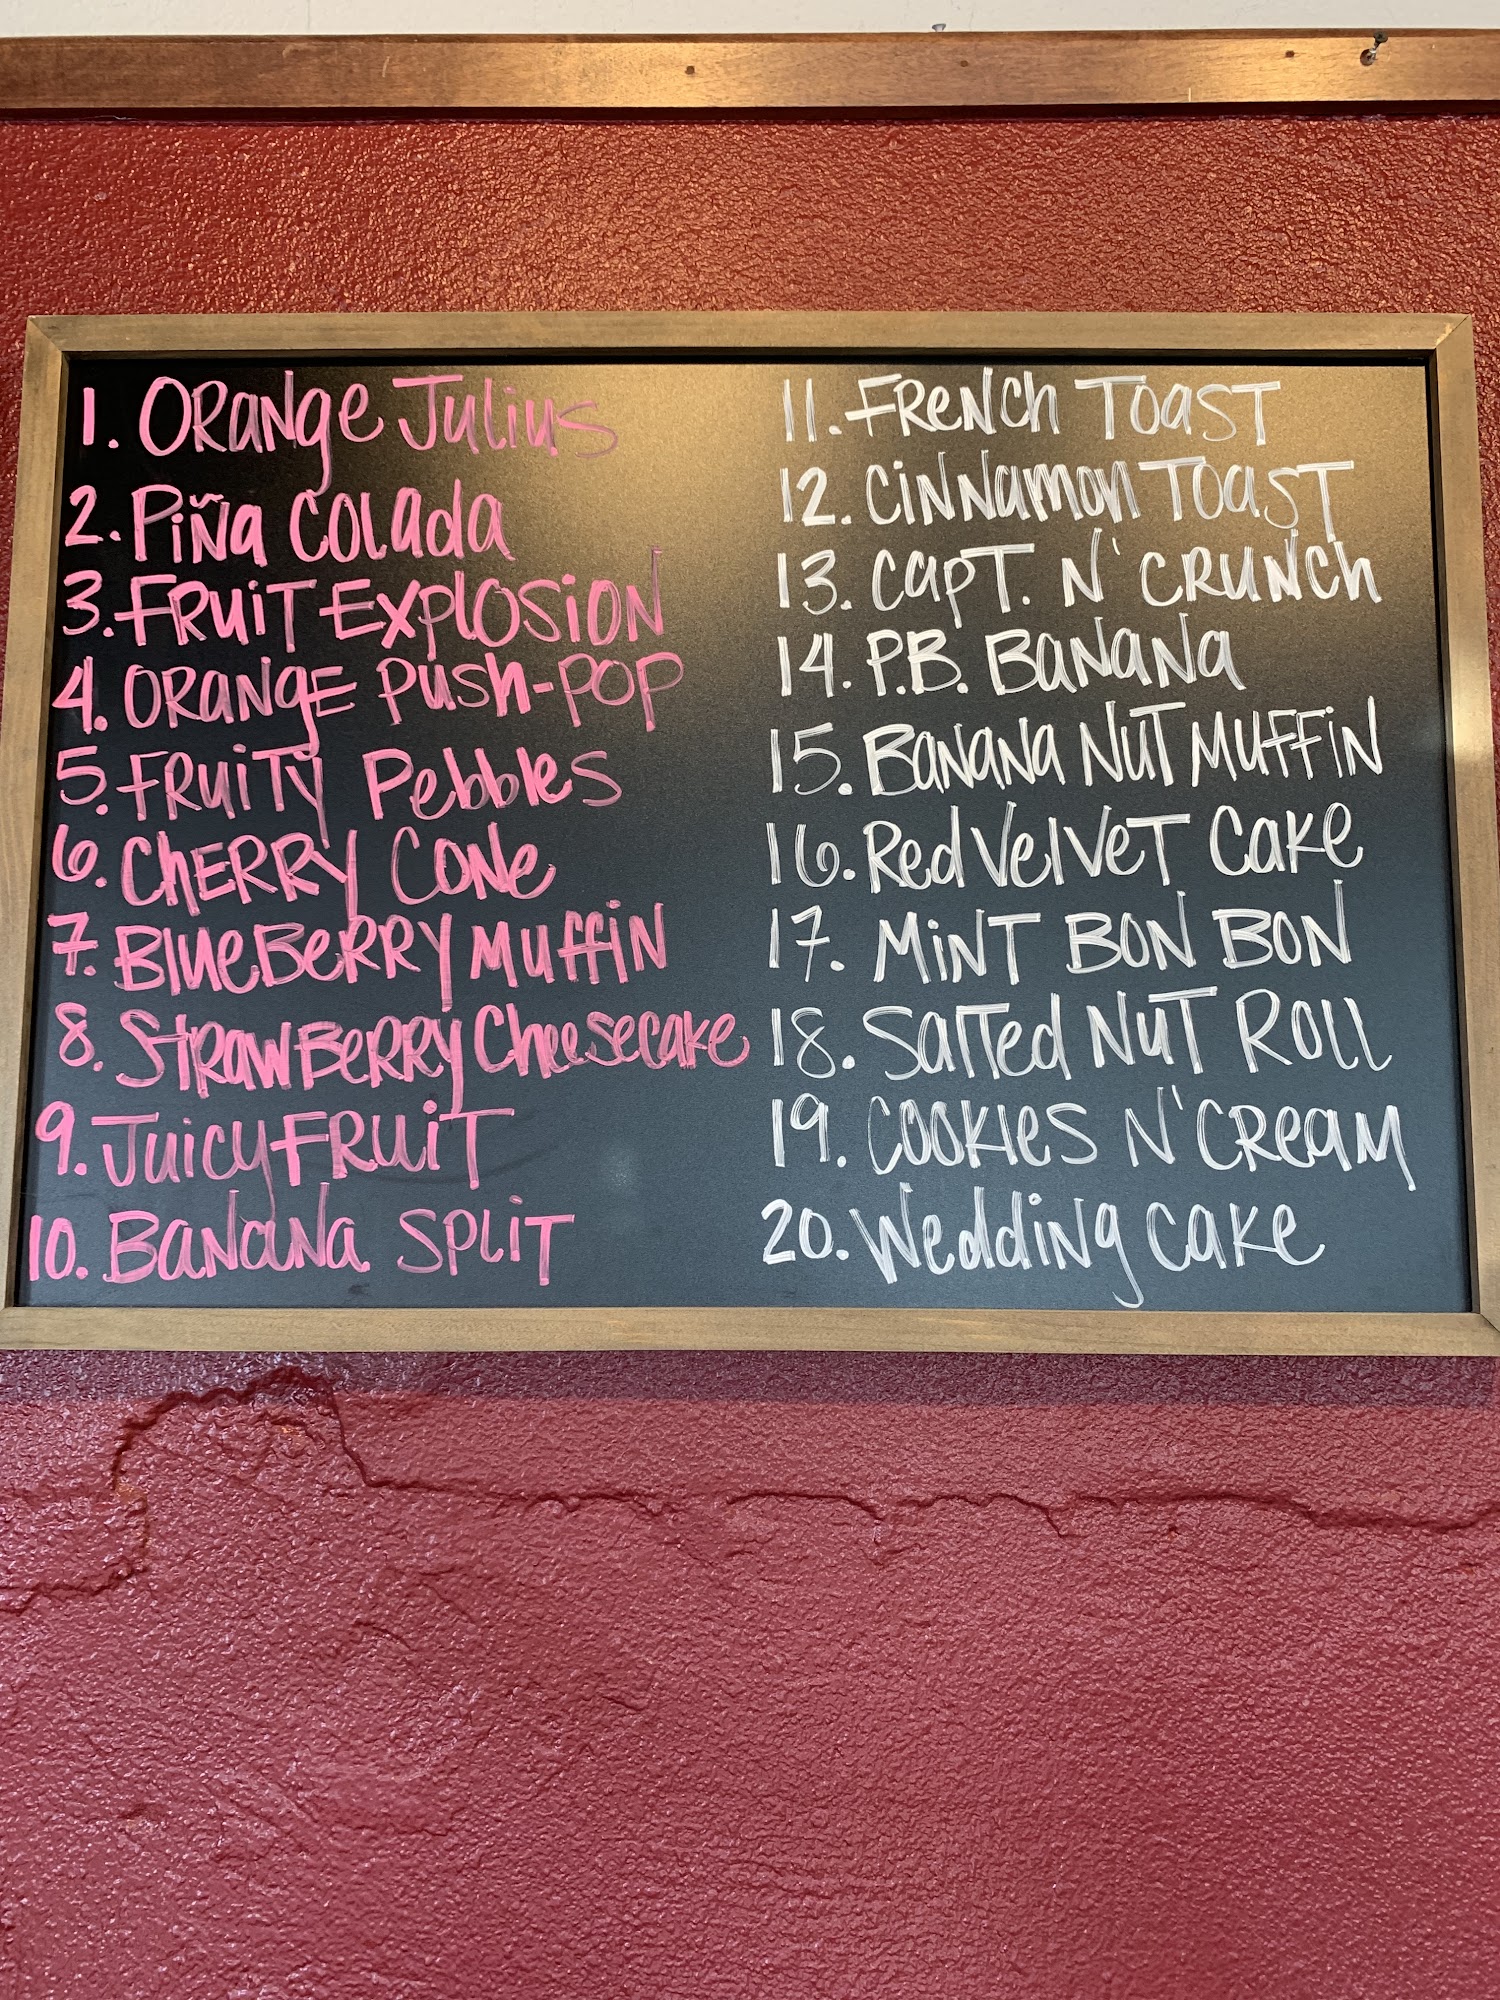 1. Orange Julius
2. Piña Colada
3. Fruit Explosion
4. Orange Push-Pop
5. Fruity Pebbles
6. Cherry Cone
7. Blueberry Muffin
8. Strawberry Cheesecake
9. Juicy Fruit
10. Banana Split
11. French Toast
12. Cinnamon Toast
13. Capt. N' Crunch
14. P.B. Banana
15. Banana Nut Muffin
16. Red Velvet Cake
17. Mint Bon Bon
18. Salted Nut Roll
19. Cookies N' Cream
20. Wedding Cake